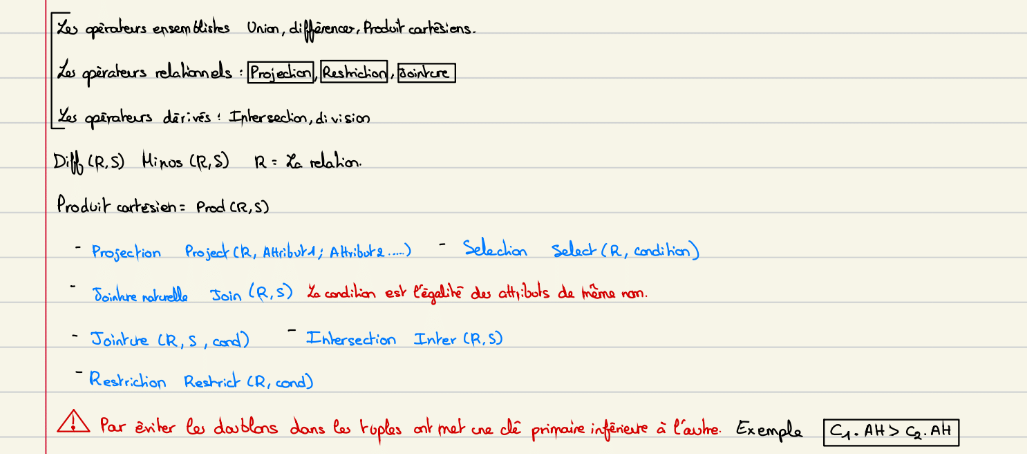 Les opérateurs ensemblistes Union, différences, Produit cartésiens.
Les opérateurs relationnels : Projection, Restriction, Jointure
Les opérateurs dérivés : Intersection, division
Diff (R,S) Minos (R,S) R = La relation.
Produit cartésien = Prod (R,S)
- Projection Project (R, Attribut1; Attribut2.....) - Selection Select (R, condition)
- Jointure naturelle Join (R,S) La condition est l'égalité des attributs de même nom.
- Jointure (R, S, cond) - Intersection Inter (R,S)
- Restriction Restrict (R, cond)
Par éviter les doublons dans les tuples ont met une clé primaire inférieure à l'autre. Exemple C1.AH > C2.AH